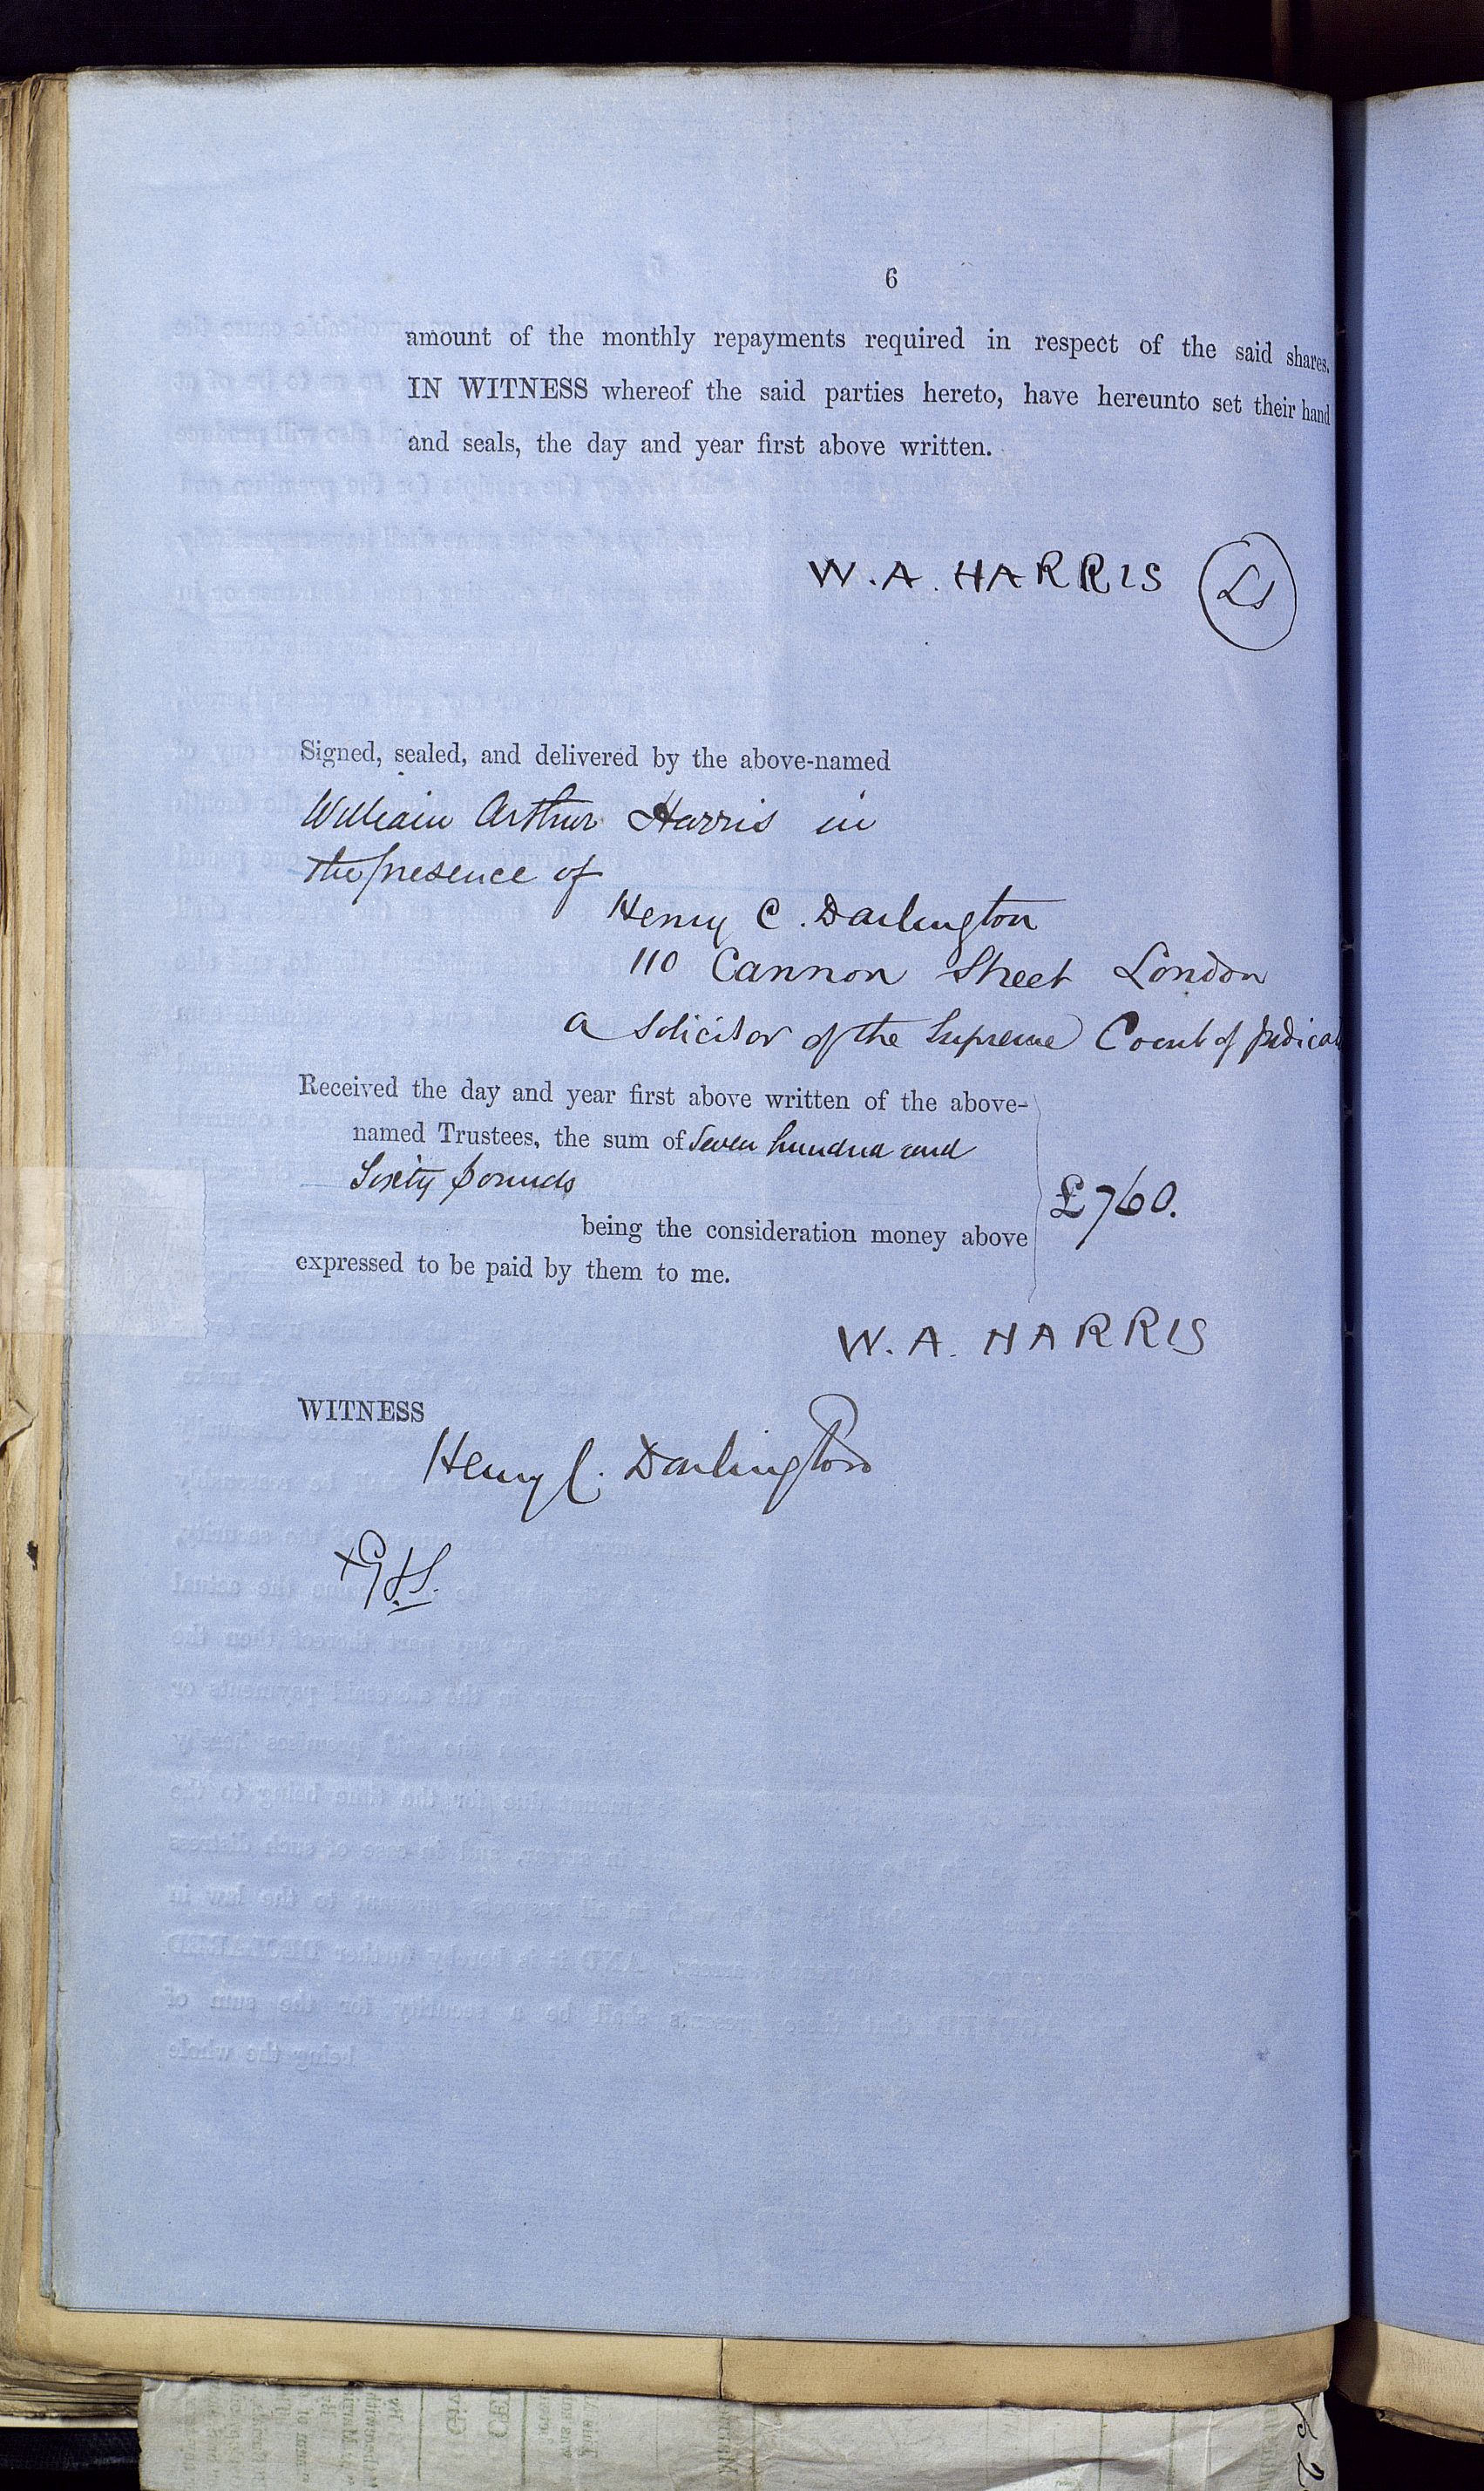 6
amount of the monthly repayments required in respect of the said shares.
IN WITNESS whereof the said parties hereto, have hereunto set their hand
and seals, the day and year first above written.
W. A. HARRIS Ls
Signed, sealed, and delivered by the above-named
William Arthur Harris in
the presence of
Henry C. Darlington
110 Cannon Street London
a Solicitor of the Supreme Court of Judicat
Received the day and year first above written of the above-
named Trustees, the sum of Seven hundred and
Sixty pounds
£760.
being the consideration money above
expressed to be paid by them to me.
W. A. HARRIS
WITNESS
Henry C. Darlington